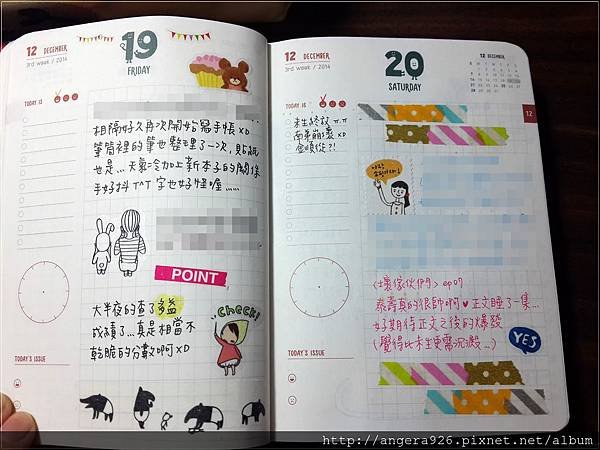 12 DECEMBER
3rd week / 2014
19
FRIDAY
TODAY IS
相隔好久再次開始寫手帳 XD
筆筒裡的筆也整理了一次，貼紙
也是...天氣冷加上新本子的關係
手好抖 TAT 字也好怪喔......
POINT
大半夜的查了多益
成績了...真是相當不
乾脆的分數啊 XD
Check!
TODAY'S ISSUE
12 DECEMBER
3rd week / 2014
20
SATURDAY
12 DECEMBER
12
TODAY IS
未生終放 π.π
雨車崩壞 XD
<壞傢伙們> ep07
泰壽真的很帥啊♥正文睡了一集...
好期待正文之後的爆發
(覺得比未生更需沉澱...)
YES
TODAY'S ISSUE
http://angera926.pixnet.net/album